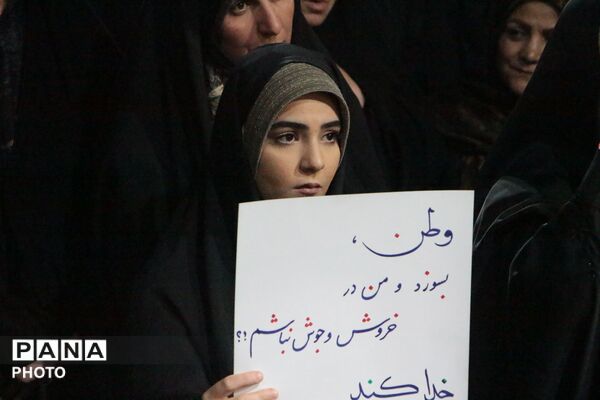 وطن،
بسوزد و من در
خروش و جوش نباشم؟!
خدا کند
PANA
PHOTO